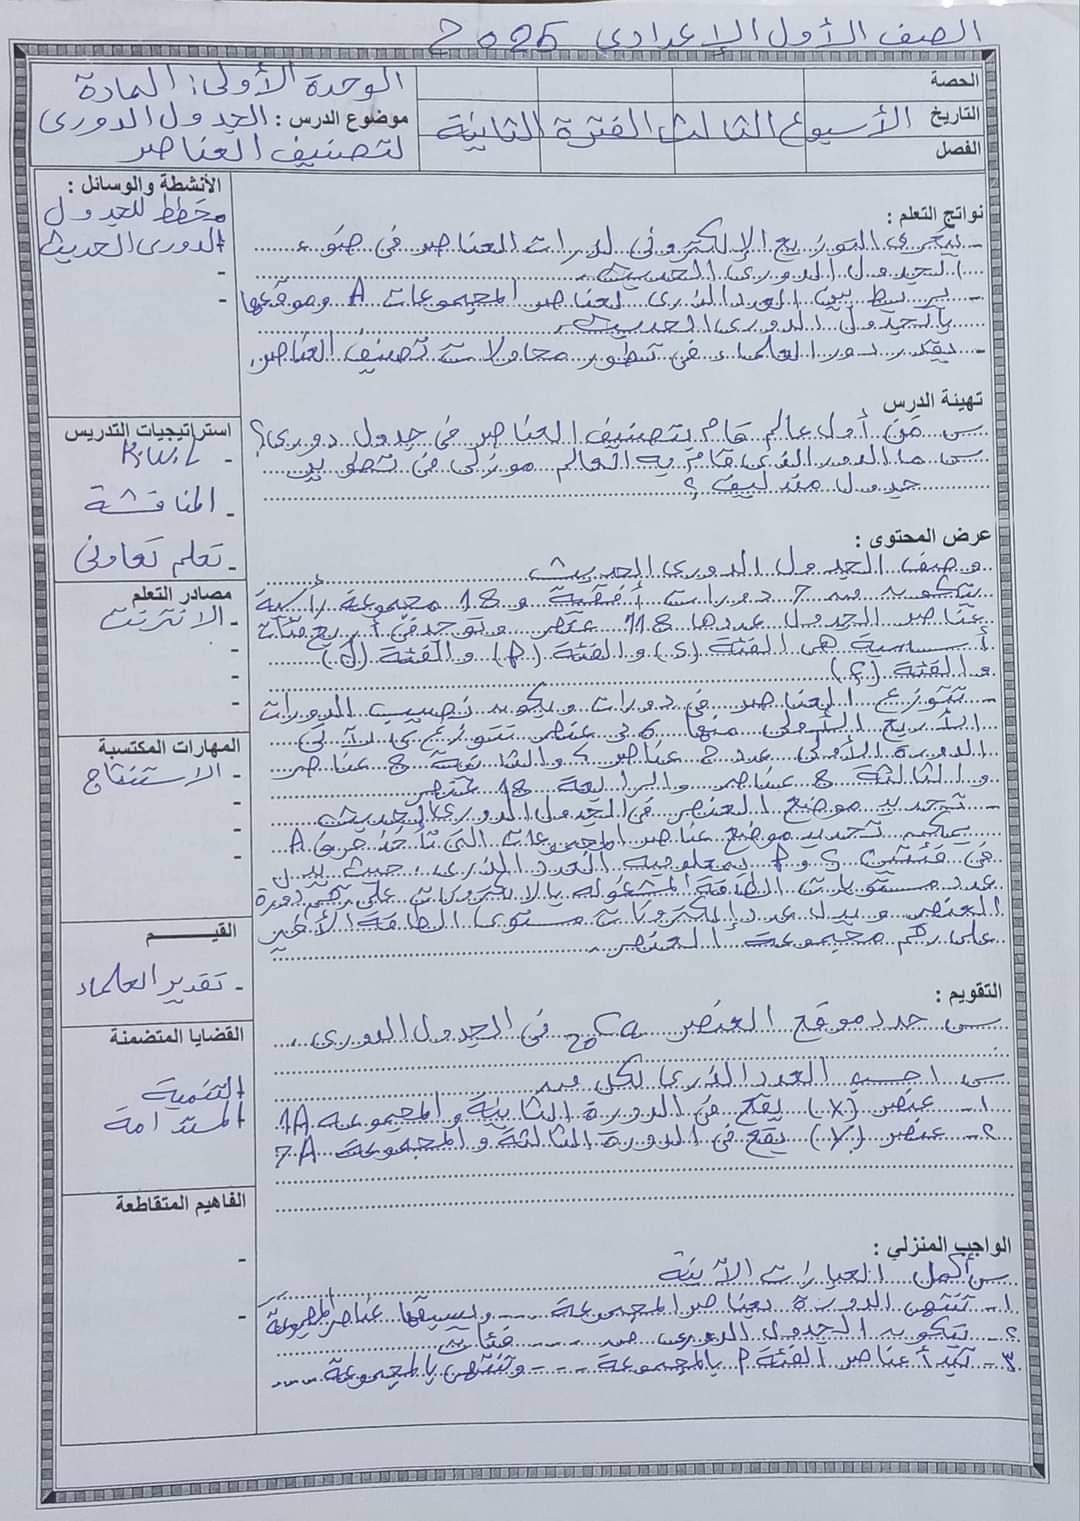 الصف الأول الإعدادى 2025
الحصة
التاريخ الأسبوع الثالث الفترة الثانية
الفصل
الوحدة الأولى: المادة
موضوع الدرس : الجدول الدورى
لتصنيف العناصر
نواتج التعلم :
- يجرى التوزيع الإلكترونى لذرات العناصر فى ضوء
الجدول الدورى الحديث.
- يربط بين العدد الذرى لعناصر المجموعات A وموقعها
بالجدول الدورى الحديث.
- يقدر دور العلماء فى تطور محاولات تصنيف العناصر.
تهيئة الدرس
س من أول عالم قام بتصنيف العناصر فى جدول دورى؟
س ما الدور الذى قام به العالم موزلى فى تطوير
جدول مندليف؟
عرض المحتوى :
وصف الجدول الدورى الحديث
يتكون من 7 دورات أفقية و 18 مجموعة رأسية
عناصر الجدول عددها 118 عنصر وتوجد فى أربع فئات
أساسية هى الفئة (s) والفئة (p) والفئة (d)
والفئة (f)
- تتوزع العناصر فى دورات ويكون نصيب الدورات
الأربع الأولى منها 36 عنصر تتوزع كالآتى
الدورة الأولى عدد 2 عناصر والثانية 8 عناصر
والثالثة 8 عناصر والرابعة 18 عنصر
- تحديد موضع العنصر فى الجدول الدورى الحديث
يمكن تحديد موضع عناصر المجموعات التى تأخذ حرف A
فى فئتين s و p بمعلومية العدد الذرى، حيث يدل
عدد مستويات الطاقة المشغولة بالإلكترونات على رقم دورة
العنصر ويدل عدد إلكترونات مستوى الطاقة الأخير
على رقم مجموعة العنصر.
التقويم :
س حدد موقع العنصر ₂₀Ca فى الجدول الدورى.
س احسب العدد الذرى لكل من
١- عنصر (X) يقع فى الدورة الثانية والمجموعة 1A
٢- عنصر (Y) يقع فى الدورة الثالثة والمجموعة 7A
الواجب المنزلي :
س أكمل العبارات الآتية
١- تنتهى الدورة بعناصر المجموعة ---- ويسبقها عناصر المجموعة
٢- يتكون الجدول الدورى من ---- فئات
٣- تبدأ عناصر الفئة P بالمجموعة ---- وتنتهى بالمجموعة ----
الأنشطة والوسائل :
- مخطط للجدول
الدورى الحديث
-
-
استراتيجيات التدريس
- K.W.L
- المناقشة
- تعلم تعاونى
مصادر التعلم
- الانترنت
-
-
-
المهارات المكتسبة
- الاستنتاج
-
-
-
القيــــــم
- تقدير العلماء
القضايا المتضمنة
التنمية
المستدامة
الفاهيم المتقاطعة
-
-